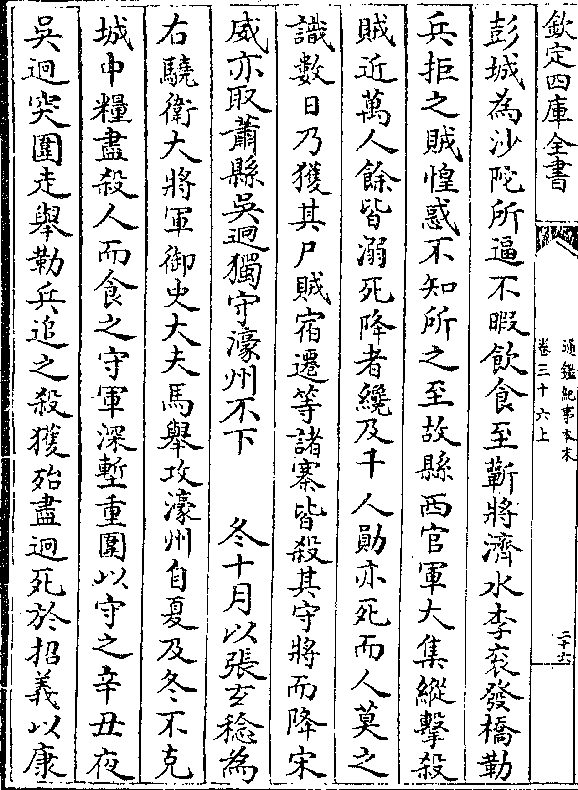 欽定四庫全書
通鑑紀事本末
卷三十六上
二十六
彭城為沙陀所逼不暇飲食至蘄將濟水李袞發橋勒
兵拒之賊惶惑不知所之至故縣西官軍大集縱擊殺
賊近萬人餘皆溺死降者纔及千人勛亦死而人莫之
識數日乃獲其尸賊宿遷等諸寨皆殺其守將而降宋
威亦取蕭縣吳迥獨守濠州不下　冬十月以張𤣥稔為
右驍衛大將軍御史大夫馬舉攻濠州自夏及冬不克
城中糧盡殺人而食之守軍深塹重圍以守之辛丑夜
吳迥突圍走舉勒兵追之殺獲殆盡迥死於招義以康